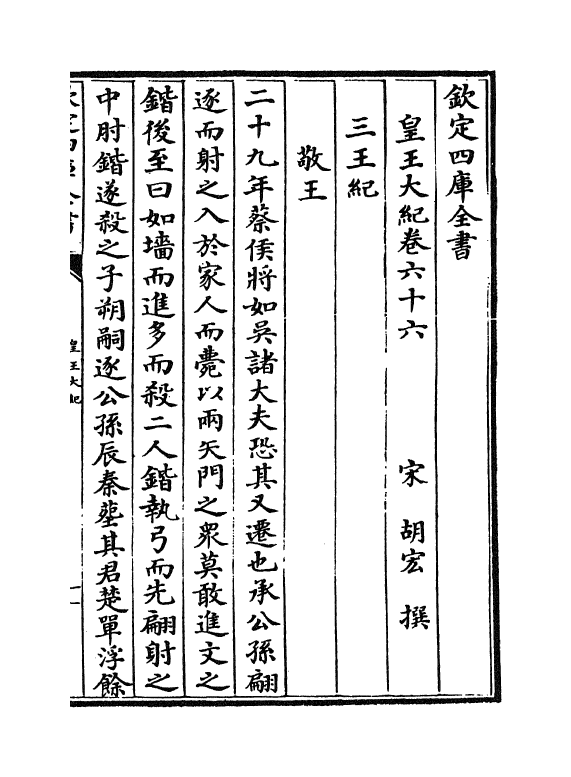 欽定四庫全書
皇王大紀卷六十六 宋 胡宏 撰
三王紀
敬王
二十九年蔡侯將如吳諸大夫恐其又遷也承公孫翩
逐而射之入於家人而薨以兩矢門之衆莫敢進文之
鍇後至曰如墻而進多而殺二人鍇執弓而先翩射之
中肘鍇遂殺之子朔嗣逐公孫辰秦塟其君楚單浮餘
欽定四庫全書
皇王大紀
一